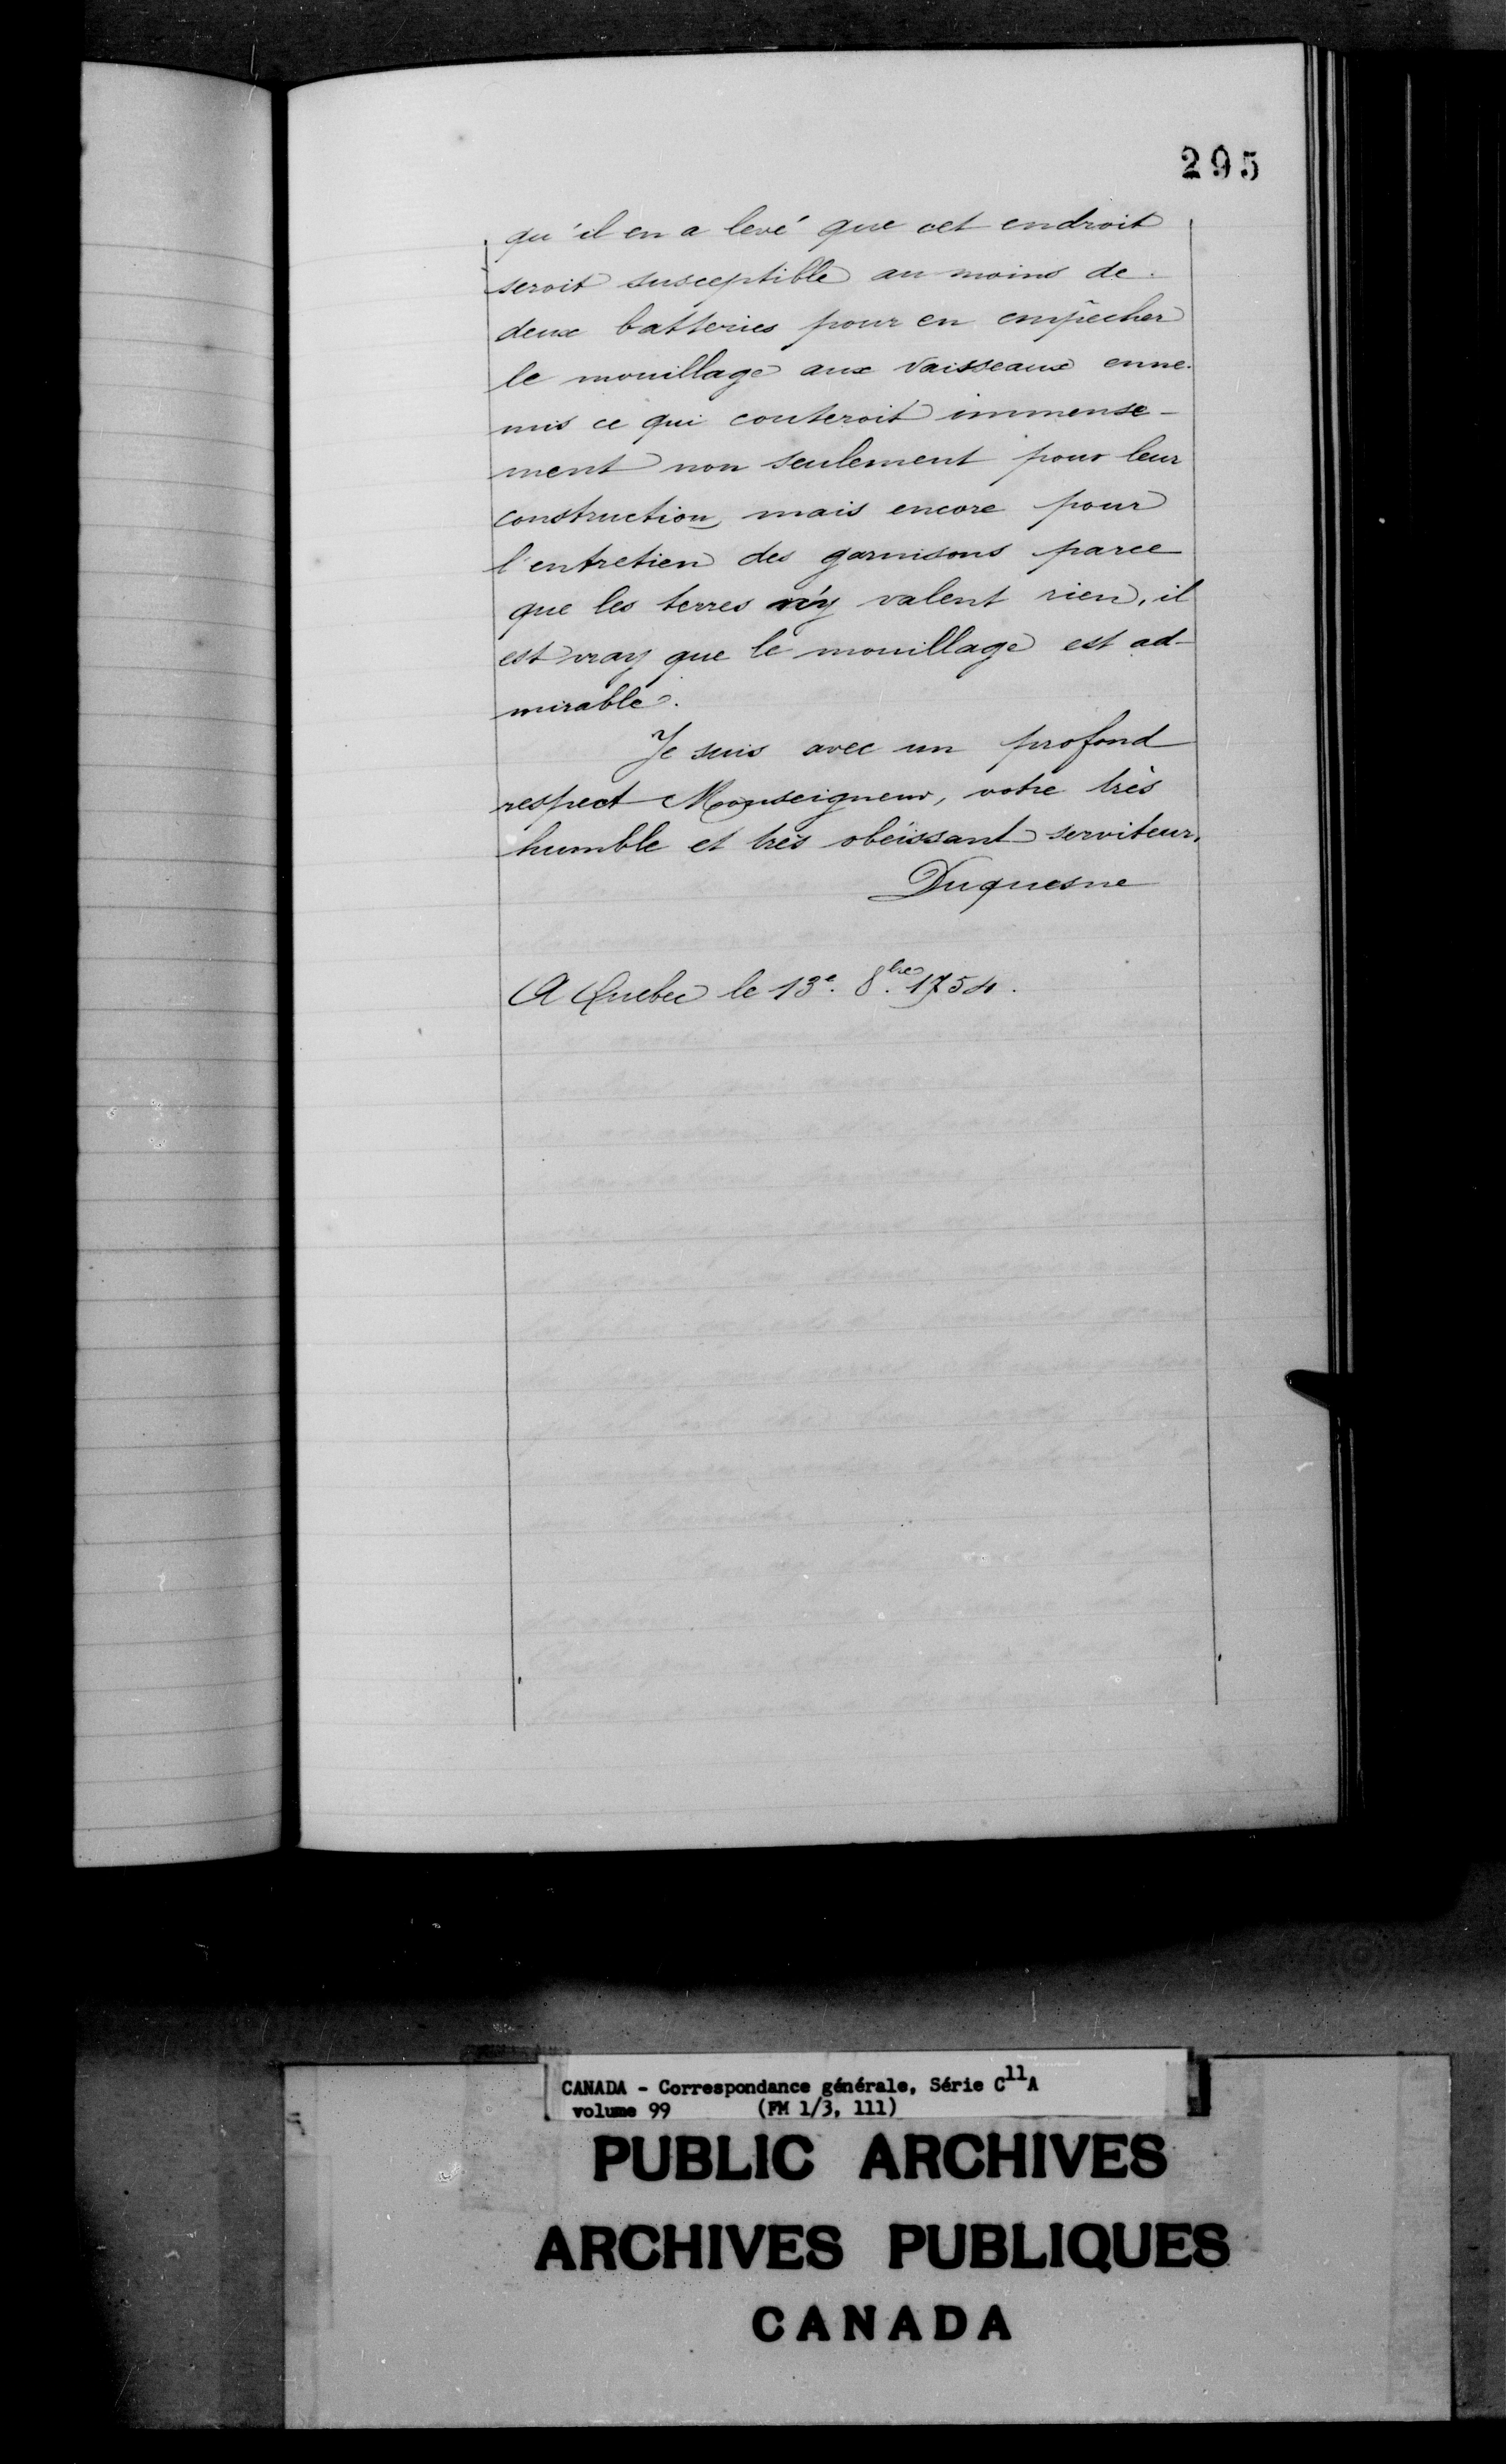 295
qu'il en a levé que cet endroit
seroit susceptible au moins de
deux batteries pour en empêcher
le mouillage aux vaisseaux enne-
mis ce qui couteroit immense-
ment non seulement pour leur
construction, mais encore pour
l'entretien des garnisons parce
que les terres n'y valent rien, il
est vray que le mouillage est ad-
mirable.
Je suis avec un profond
respect Monseigneur, votre très
humble et très obéissant serviteur,
Duquesne
A Quebec le 13e. 8.bre 1754.
CANADA - Correspondance générale, Série C11A
volume 99 (FM 1/3, 111)
PUBLIC ARCHIVES
ARCHIVES PUBLIQUES
CANADA